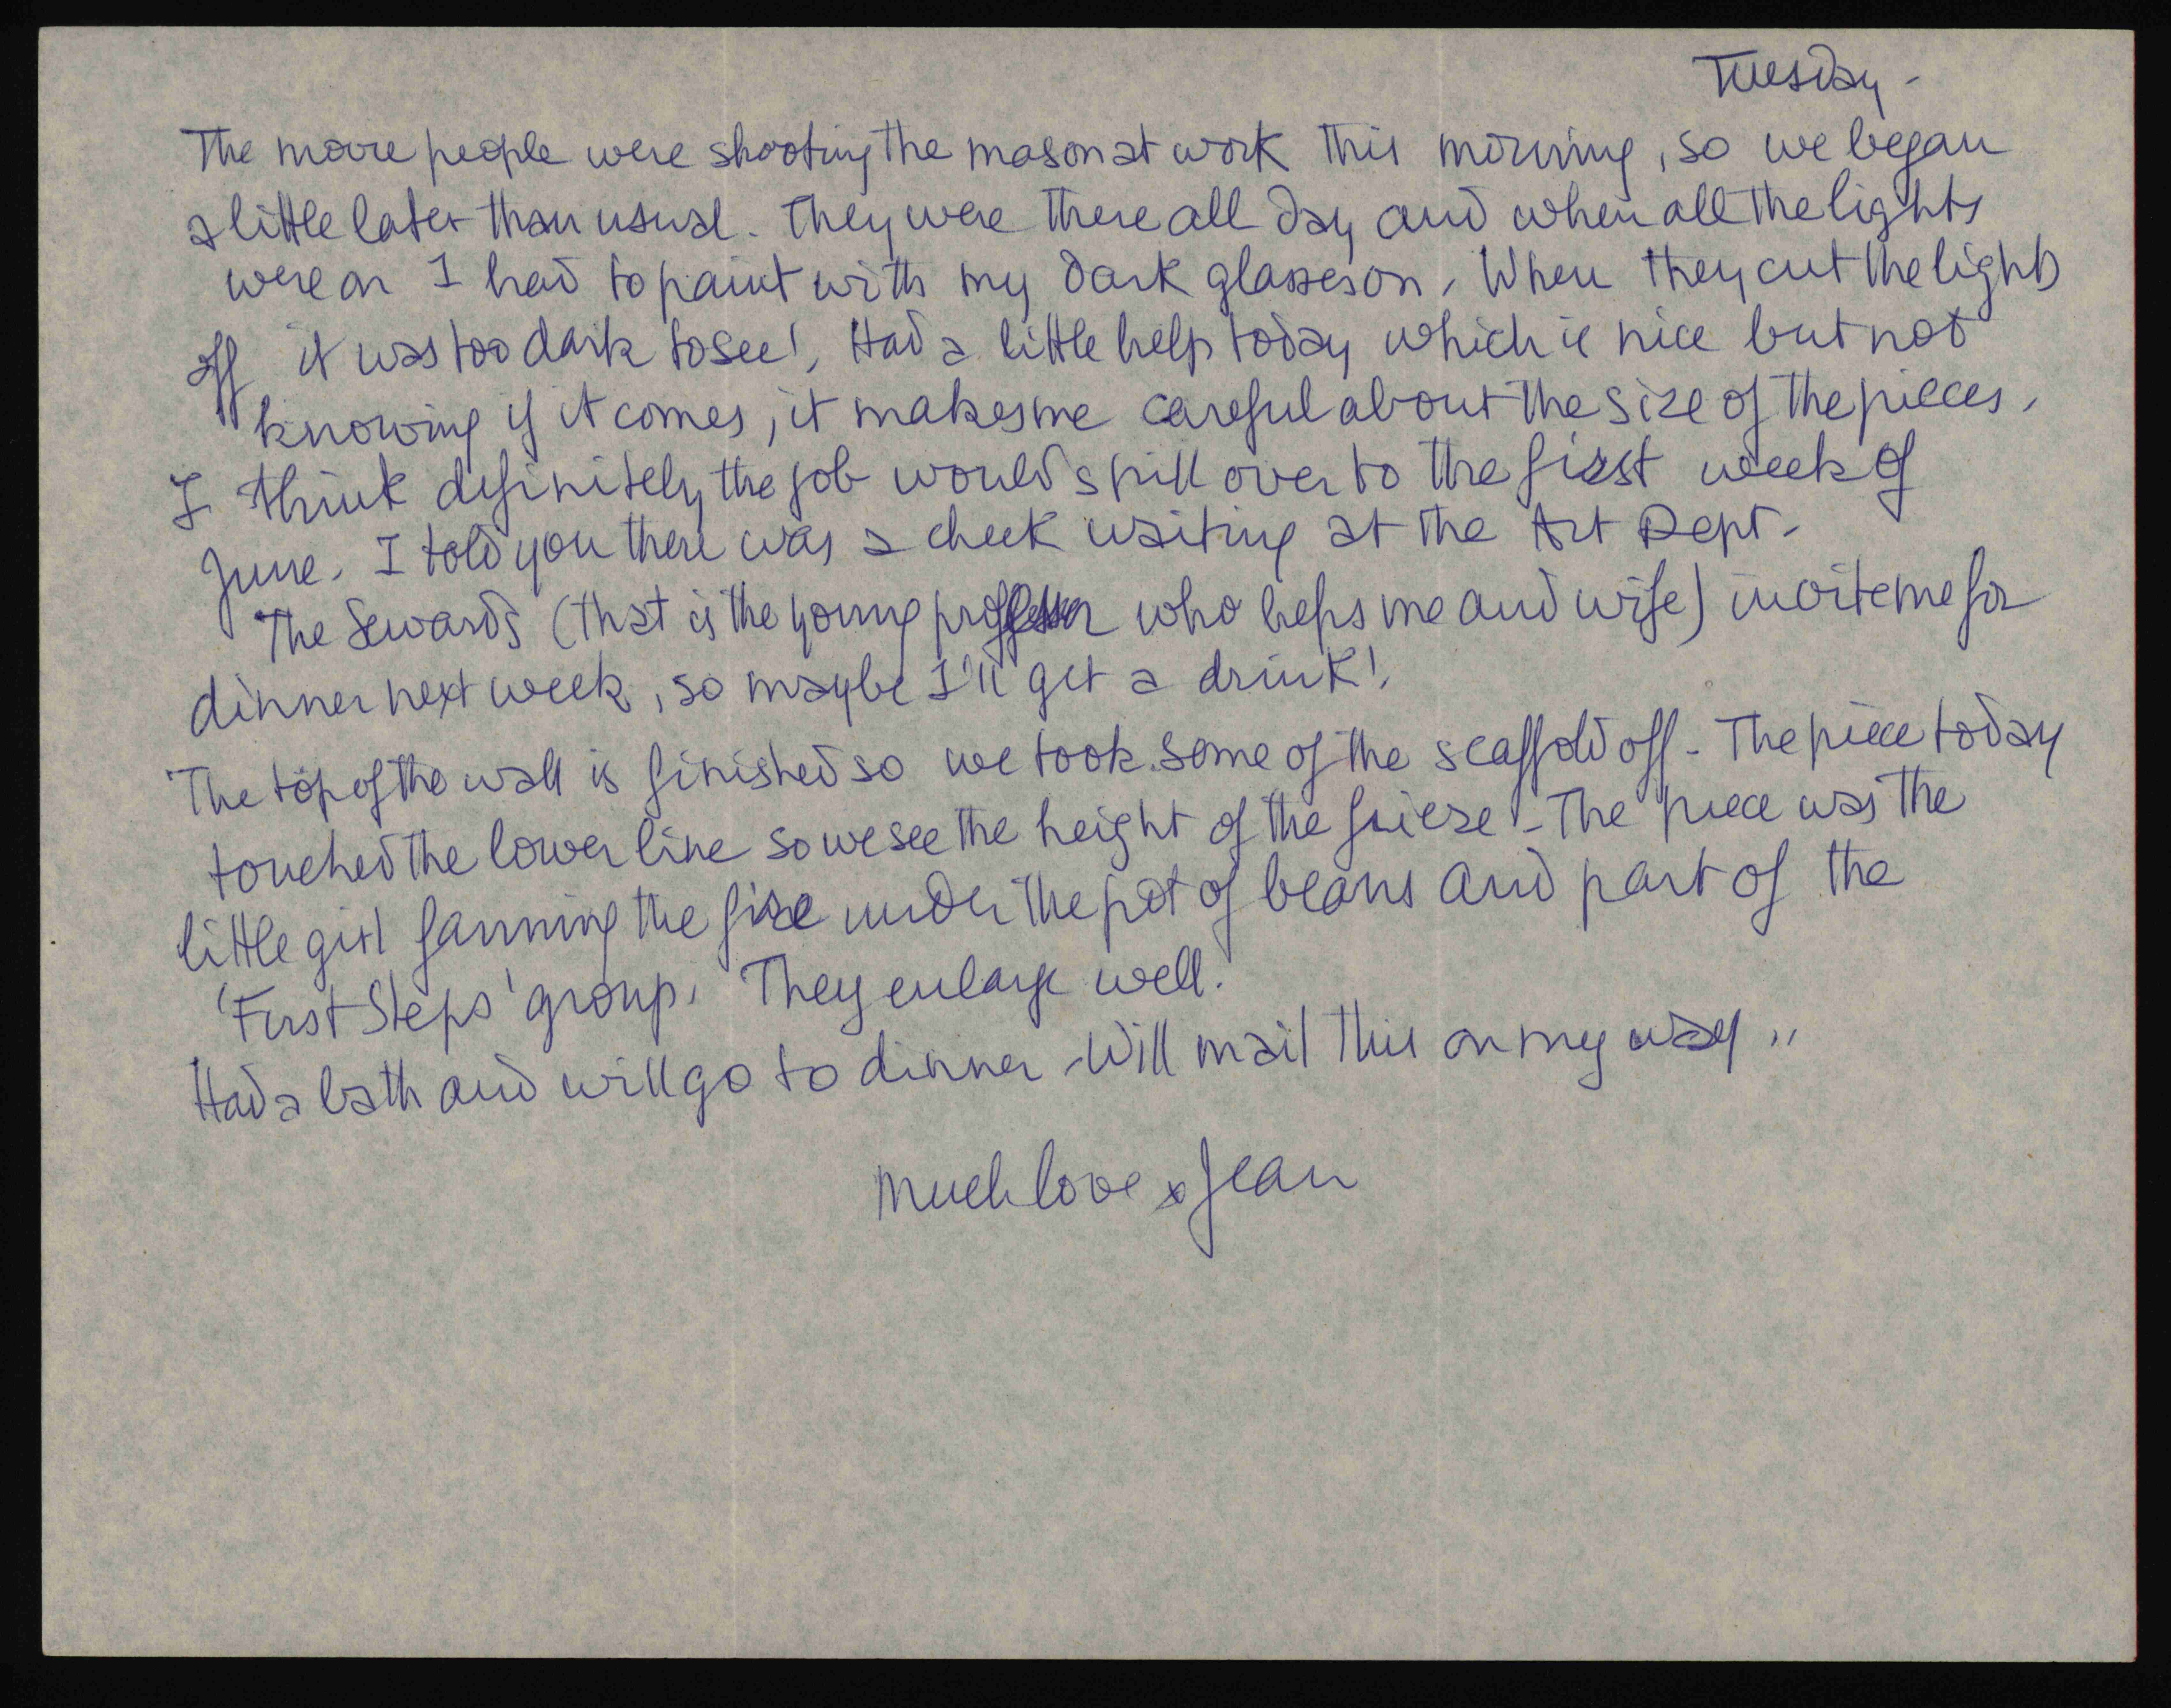 Tuesday -
The movie people were shooting the mason at work this morning, so we began
a little later than usual. They were there all day and when all the lights
were on I had to paint with my dark glasses on. When they cut the lights
off it was too dark to see!, Had a little help today which is nice but not
knowing if it comes, it makes me careful about the size of the pieces.
I think definitely the job would spill over to the first week of
June. I told you there was a check waiting at the Art Dept.
The Sewards (that is the young professor who helps me and wife) invite me for
dinner next week, so maybe I'll get a drink!.
The top of the wall is finished so we took some of the scaffold off - The piece today
touched the lower line so we see the height of the frieze - The piece was the
little girl fanning the fire under the pot of beans and part of the
'First Steps' group. They enlarge well.
Had a bath and will go to dinner - Will mail this on my way ..
Much love x Jean